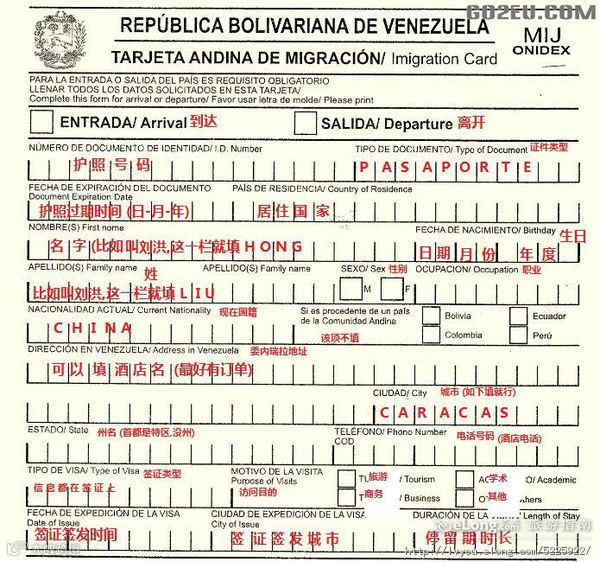 GO2EU.COM
REPÚBLICA BOLIVARIANA DE VENEZUELA
MIJ
ONIDEX
TARJETA ANDINA DE MIGRACIÓN/ Imigration Card
PARA LA ENTRADA O SALIDA DEL PAÍS ES REQUISITO OBLIGATORIO
LLENAR TODOS LOS DATOS SOLICITADOS EN ESTA TARJETA/
Complete this form for arrival or departure/ Favor usar letra de molde/ Please print
ENTRADA/ Arrival 到达 SALIDA/ Departure 离开
NÚMERO DE DOCUMENTO DE IDENTIDAD/ I.D. Number TIPO DE DOCUMENTO/ Type of Document 证件类型
护照号码 PASAPORTE
FECHA DE EXPIRACIÓN DEL DOCUMENTO PAÍS DE RESIDENCIA/ Country of Residence
Document Expiration Date
护照过期时间 (日-月-年) 居住国家
NOMBRE(S) First name FECHA DE NACIMIENTO/ Birthday 生日
名字(比如叫刘洪,这一栏就填HONG 日期月份 年度
APELLIDO(S) Family name 姓 APELLIDO(S) Family name SEXO/ Sex 性别 OCUPACION/ Occupation 职业
比如叫刘洪,这一栏就填LIU M F
NACIONALIDAD ACTUAL/ Current Nationality 现在国籍 Si es procedente de un país
de la Comunidad Andina Bolivia Ecuador
CHINA 该项不填 Colombia Perú
DIRECCIÓN EN VENEZUELA/ Address in Venezuela 委内瑞拉地址
可以填酒店名(最好有订单)
CIUDAD/ City 城市 (如下填就行)
CARACAS
ESTADO/ State 州名 (首都是特区,没州) TELÉFONO/ Phono Number 电话号码 (酒店电话)
COD
TIPO DE VISA/ Type of Visa 签证类型 MOTIVO DE LA VISITA
Purpose of Visits
信息都在签证上 访问目的
旅游 / Tourism 学术 / Academic
商务 / Business 其他 hers
FECHA DE EXPEDICIÓN DE LA VISA CIUDAD DE EXPEDICIÓN DE LA VISA DURACIÓN DE LA Length of Stay
Date of Issue City of Issue
签证签发时间 签证签发城市 停留期时长
eLong 旅游指南
http://lvyou.elong.com/5225922/